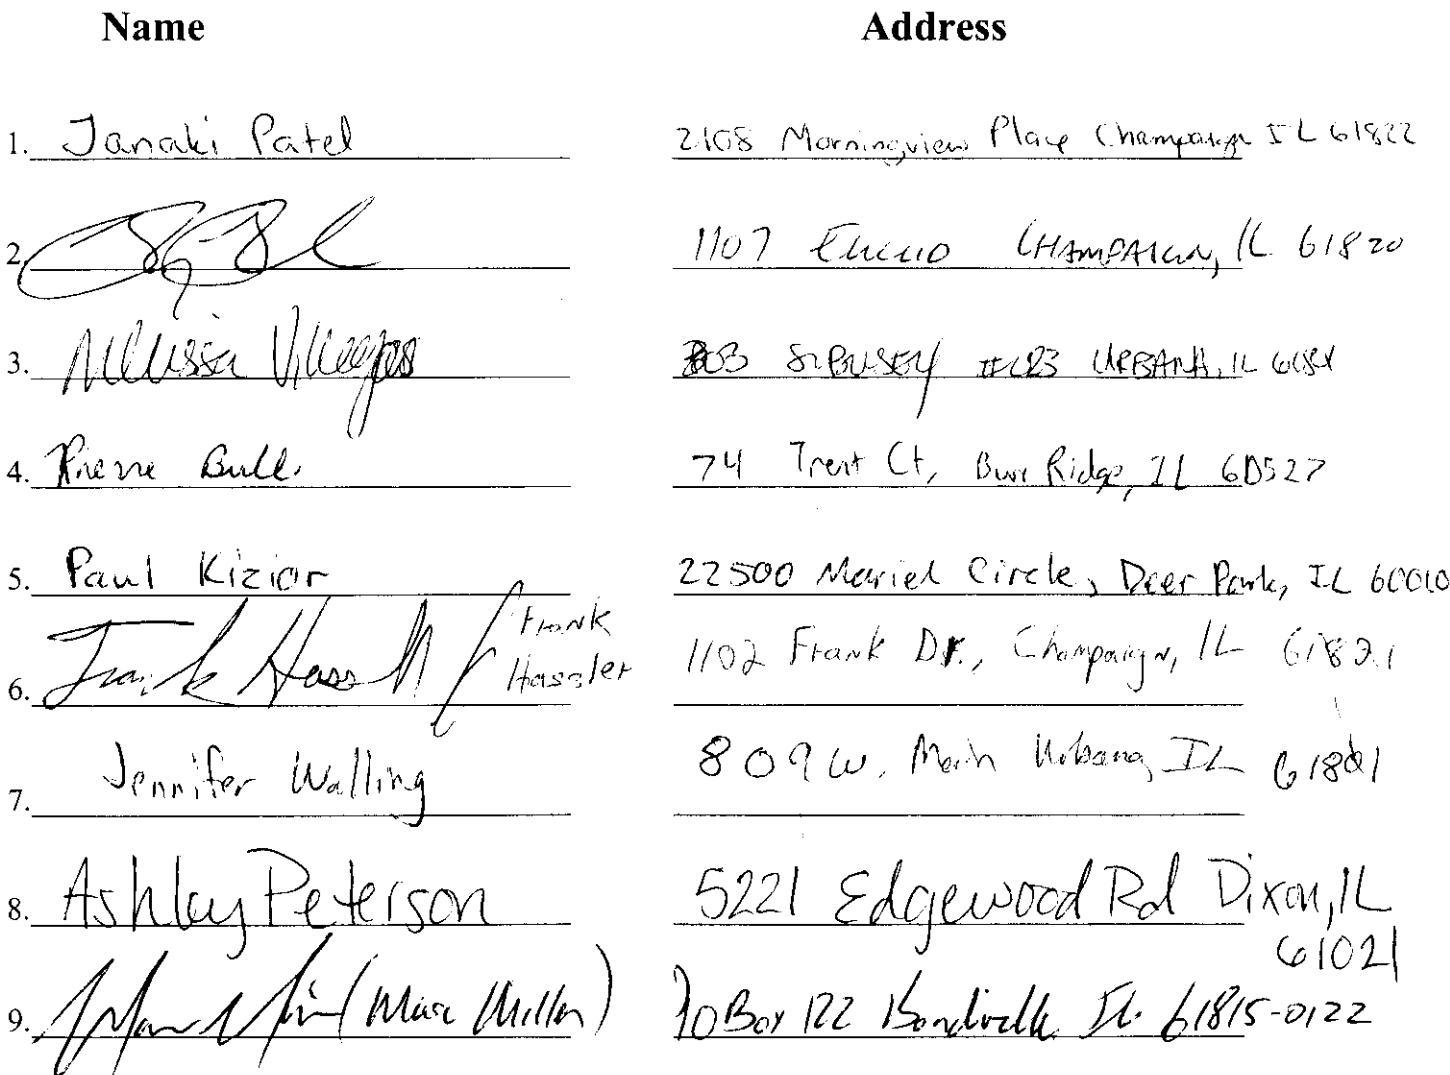 Name Address
1. Janaki Patel 2108 Morningview Place Champaign IL 61822
2. 1107 CHAMPAIGN, IL 61820
3. Melissa Villegas #123 URBANA, IL
4. Pierre Bull. 74 Trent Ct, Burr Ridge, IL 60527
5. Paul Kizior 22500 Mariel Circle, Deer Park, IL 60010
6. Frank Hassler / Frank Hassler 1102 Frank Dr., Champaign, IL 61821
7. Jennifer Walling 809 W. Main Urbana, IL 61801
8. Ashley Peterson 5221 Edgewood Rd Dixon, IL
61021
9. (Marc Miller) PO Box 122 Bondville IL. 61815-0122